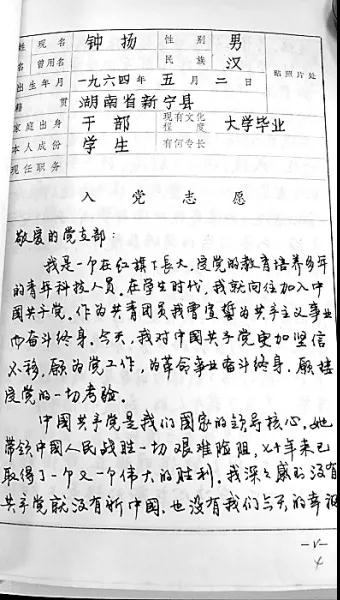 姓 现名 钟扬 性别 男
名 曾用名 民族 汉
出生年月 一九六四年 五月二日 贴照片处
籍贯 湖南省新宁县
家庭出身 干部 现有文化程度 大学毕业
本人成份 学生 有何专长
现任职务
入党志愿
敬爱的党支部：
我是一个在红旗下长大，受党的教育培养多年
的青年科技人员。在学生时代，我就向往加入中
国共产党。作为共青团员我曾宣誓为共产主义事业
而奋斗终身。今天，我对中国共产党更加坚信
不移，愿为党工作，为革命事业奋斗终身，愿接
受党的一切考验。
中国共产党是我们国家的领导核心，她
带领中国人民战胜一切艰难险阻，七十年来已
取得了一个又一个伟大的胜利。我深深感到没有
共产党就没有新中国，也没有我们今天的幸福
—V—
4